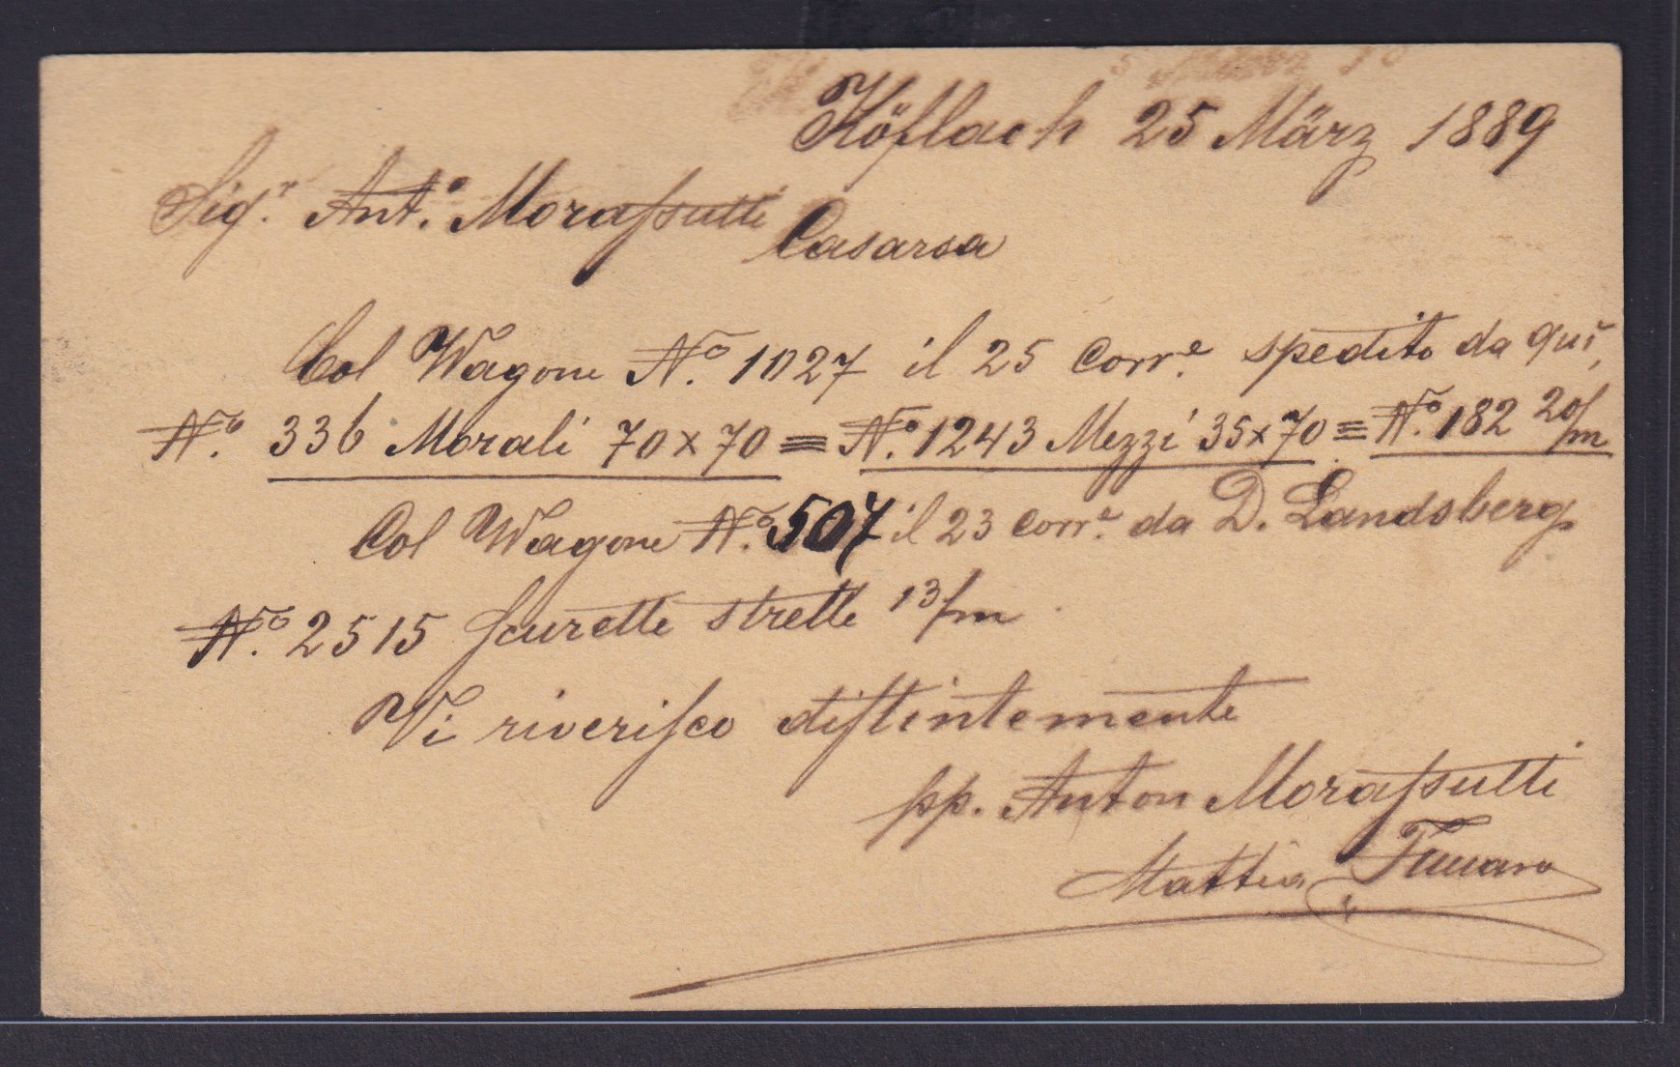 Köflach 25 März 1889
Sigr. Anto. Moraſsutti
Casarsa
Col Wagone No. 1027 il 25 corre. spedito da qui,
No. 336 Morali 70 x 70 = No. 1243 Mezzi 35 x 70 = No. 182 20/m
Col Wagone No. 507 il 23 corre. da D. Landsberg
No. 2515 scurette strette 13/m
Vi riveriſco diſtintemente
pp. Anton Moraſsutti
Mattia